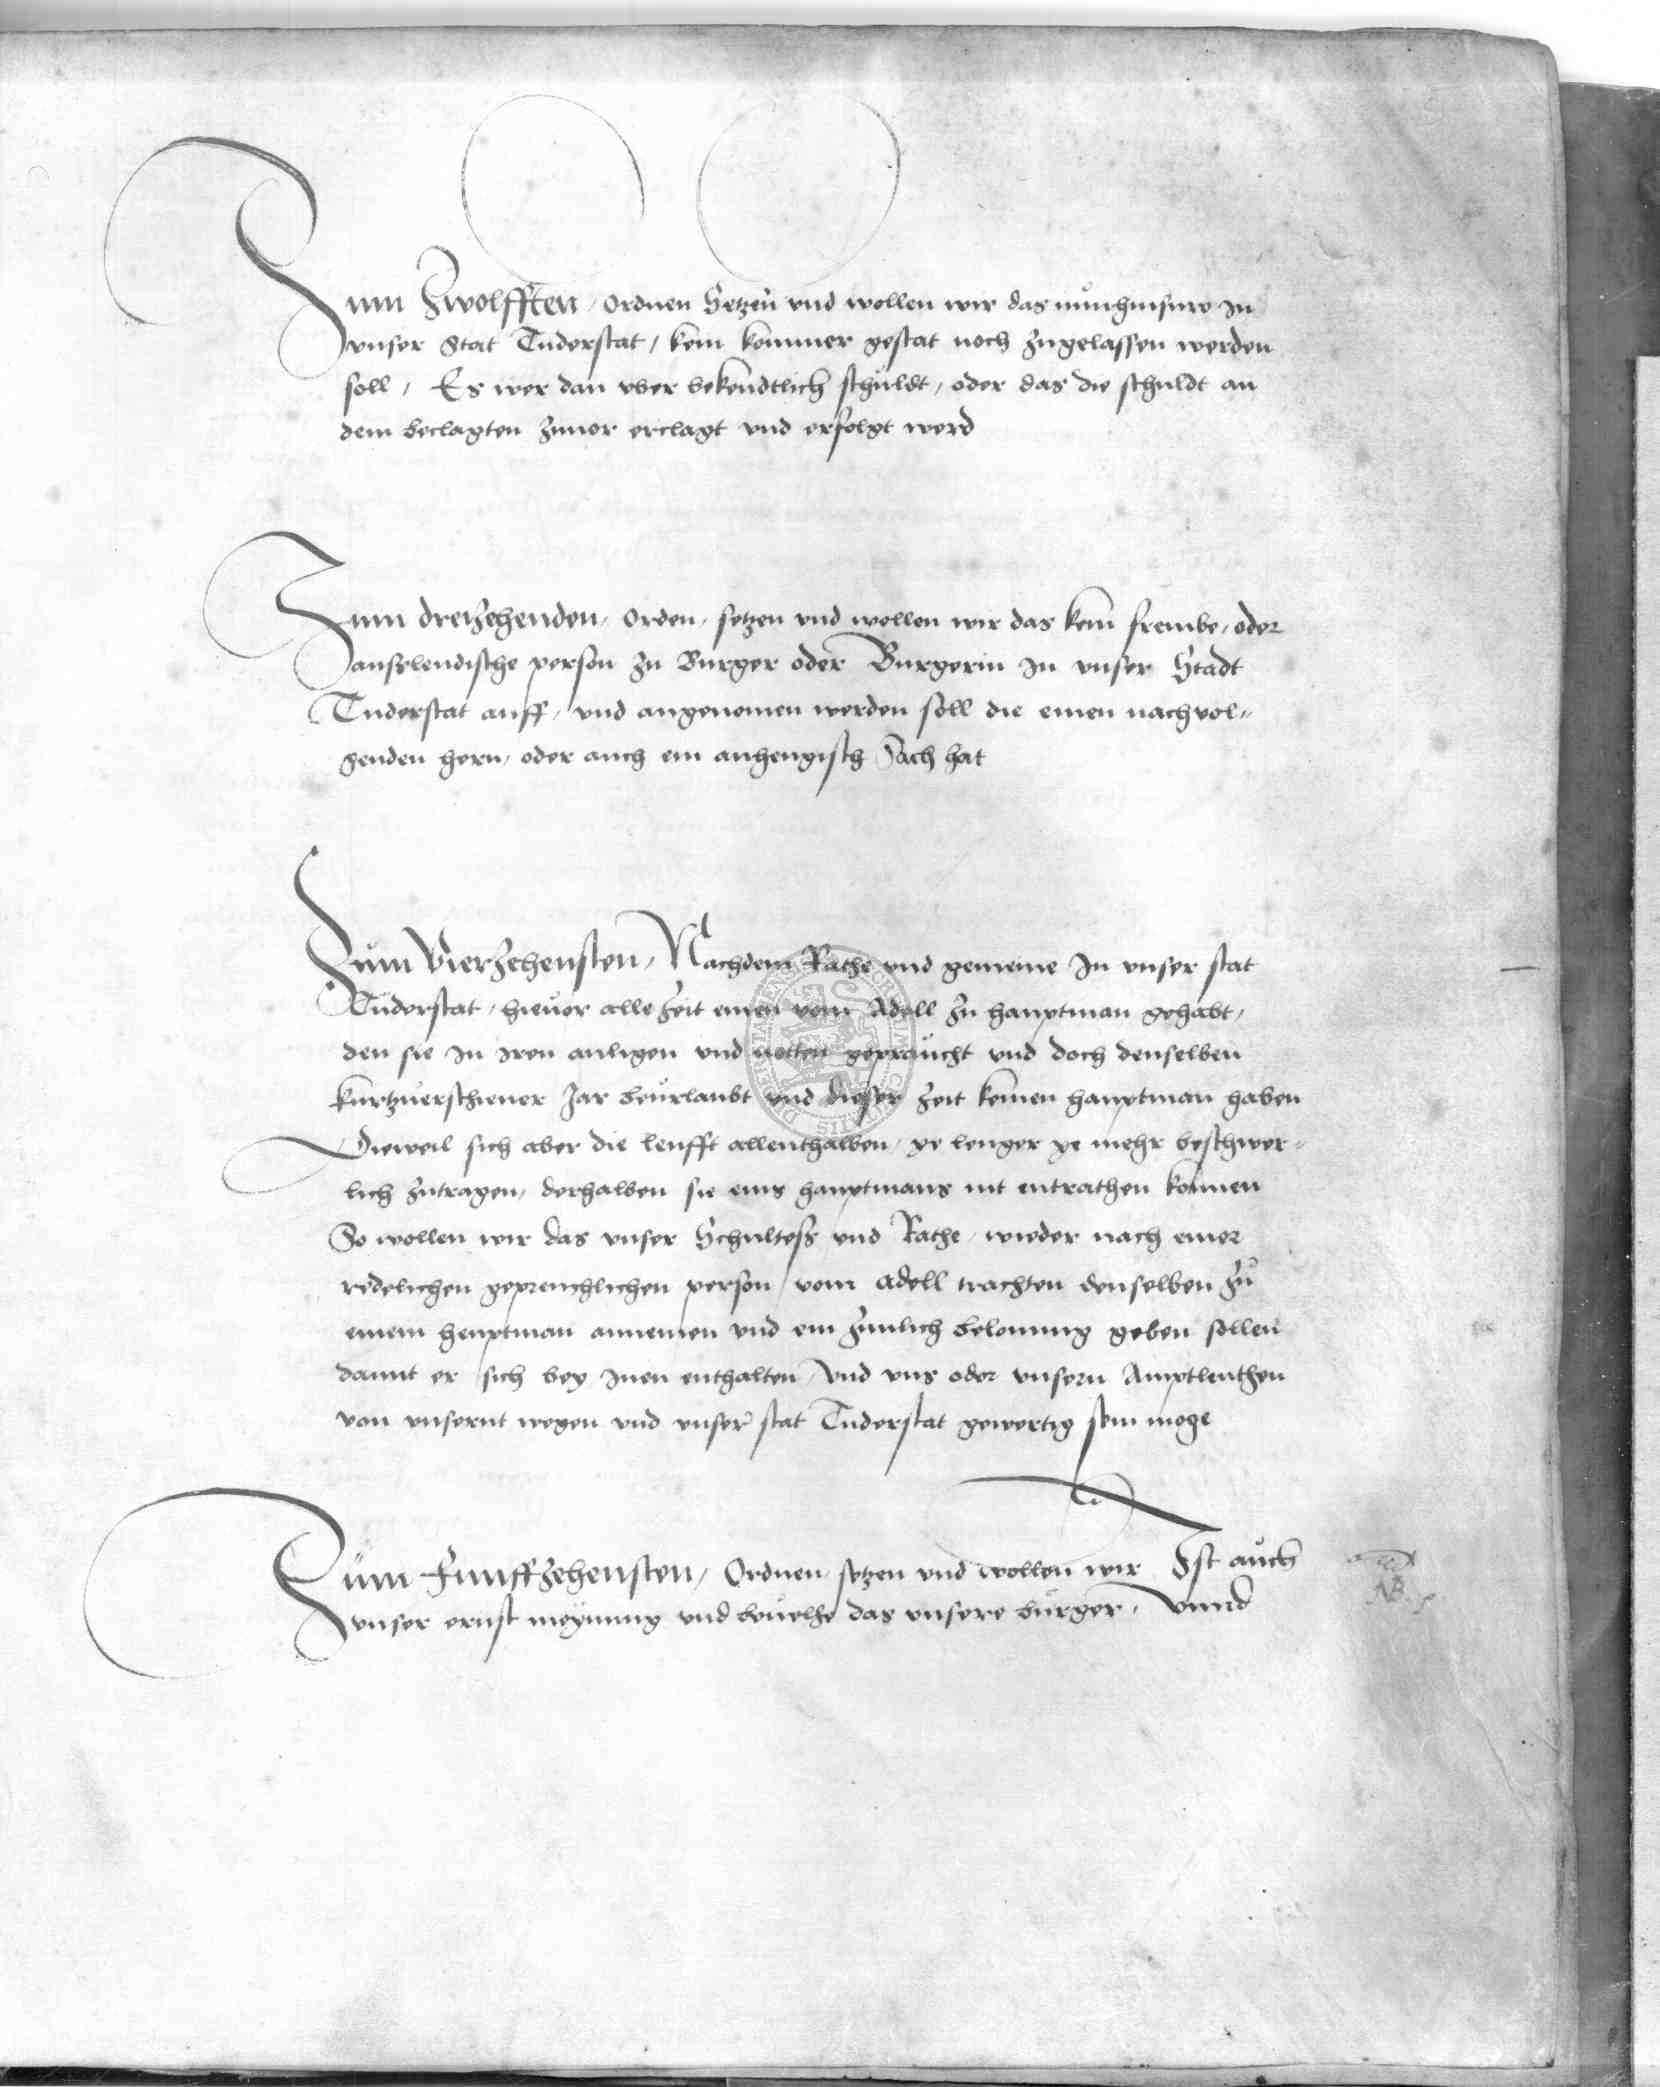 Zum Zwolfften, ordnen Setzen vnd wollen wir das nun hinfuro in
vnser Stat Duderstat, kein kommer gestat noch zugelassen werden
soll, Es wer dan vber bekendtlich schuldt, oder das die schuldt an
dem beclagten zuuor erclagt vnd erfolgt werd
Zum dreizehenden, Orden, setzen vnd wollen wir das kein frembe, oder
außlendische person zu Burger oder Burgerin in vnser Stadt
Duderstat auff, vnd angenomen werden soll die einen nachvol-
genden hern, oder auch ein anhengisch Sach hat
Zum Vierzehensten, Nachdem Rathe vnd gemeine In vnser stat
Duderstat, hieuor alle zeit einen vom Adell zu hauptman gehabt,
den sie in iren anligen vnd notten gepraucht vnd doch denselben
kurtzuerschiener Jar beurlaubt vnd dieser zeit keinen hauptman haben
Dieweil sich aber die leufft allenthalben, ye lenger ye mehr beschwer-
lich zutragen, derhalben sie eins hauptmans nit entrathen konnen
So wollen wir das vnser Schulteß vnd Rathe, wieder nach einer
redelichen gepreuchlichen person vom adell trachten denselben zu
einem heuptman annemen vnd ein zimlich belonung geben sollen
damit er sich bey inen enthalten, Vnd vns oder vnsern Amptleuthen
von vnsernt wegen vnd vnser stat Duderstat gewertig sein moge
Zum Funffzehensten, Ordnen setzen vnd wollen wir Ist auch
vnser ernst meynung vnd beuelhe das vnsere burger, Vnnd
NB.